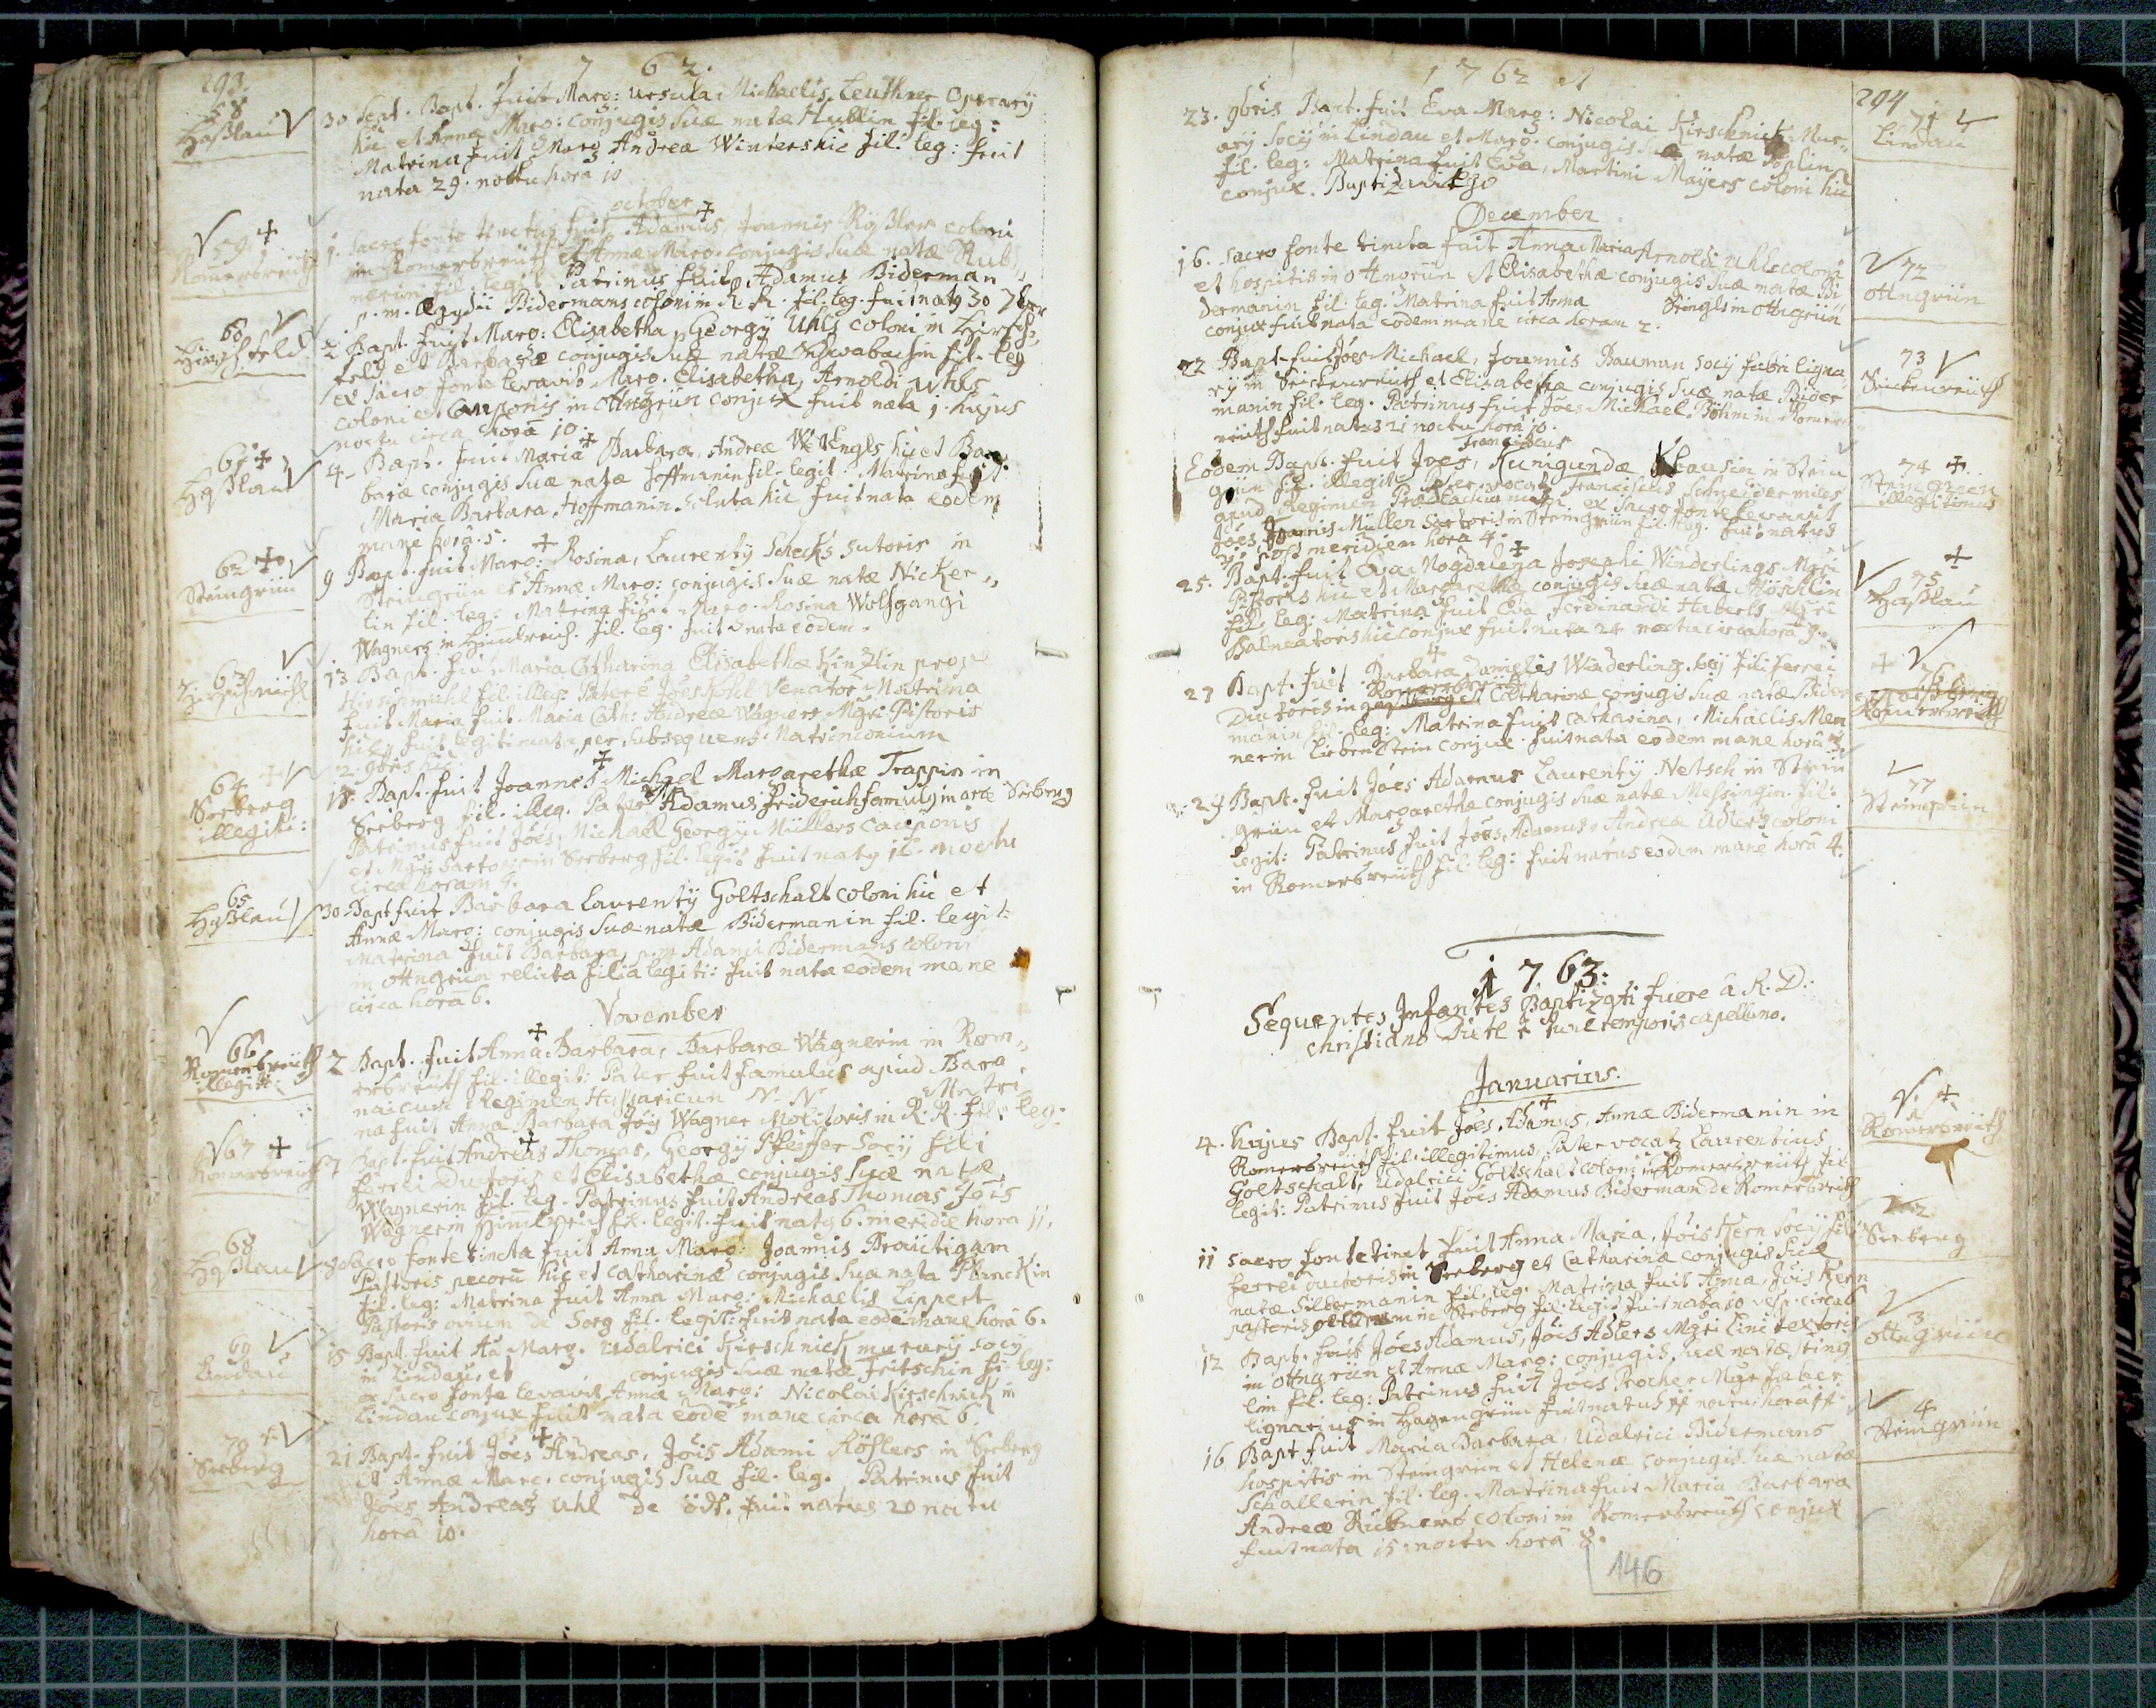 293.
1762.
58
Haßlau
30 Sept. Bapt. fuit Marg: Ursula Michaelis Leuthner Operarÿ
hic et Annæ Marg: conjugis Suæ natæ Hublin fil: leg:
Matrina fuit Marg Andreæ Winters hic fil: leg: fuit
nata 29. noctu hora 10
october
59
Romersbreüth
1. Sacro fonte tinctus fuit Adamus, Joannis Rÿßlers coloni
in Romersbreuth et Annæ Marg. conjugis Suæ natæ Rub„
nerin fil. legit. Patrinus fuit Adamus Biderman
p. m. Ægydii Bidermans coloni in R. R. fil. leg. fuit natg 30 7br
60
Hirschfeld
2 Bapt. fuit Marg: Elisabetha, Georgÿ Uhls coloni in Hirsch„
feld et Barbaræ conjugis Suæ natæ Schwabachin fil. leg
ex sacro fonte levavit Marg. Elisabetha, Arnoldi Uhls
coloni et Cauponis in Ottngrün conjux fuit nata 1. hujus
noctu circa hora 10.
61
Haßlau
4 Bapt. fuit Maria Barbara, Andreæ Wengls hic et Bar„
baræ conjugis Suæ natæ Hoffmanin fil. legit. Matrina fuit
Maria Barbara Hoffmanin soluta hic fuit nata eodem
mane hora 5.
62
Steingrün
9 Bapt. fuit Marg: Rosina, Laurentÿ Schecks Sutoris in
Steingrün et Annæ Marg: conjugis Suæ natæ Nicker„
lin fil. leg: Matrina fuit Marg. Rosina Wolfgangi
Wagners in Himlreich fil. leg. fuit nata eodem.
63
Hirschmühl
13 Bapt. fuit Maria Catharina Elisabethæ Hinzlin prope
Hirschmühl fil. illeg: Pater è Jöes Pohl Venator Matrina
fuit Maria fuit Maria Cath: Andreæ Wagners Mgri Pistoris
hic, fuit legitimata per subsequens Matrimonium
2. 9bris hic
64
Seeberg
illegiti:
18. Bapt. fuit Joannes Michael Margarethæ Trappin in
Seeberg fil. illeg. Pater Adamus Friderich famulg in arce Seeberg
Patrinus fuit Jöes Michael Georgÿ Müllers Cauponis
et Mgri Sartoris in Seeberg fil. legit fuit natg noctu
circa horam 9.
65
Haßlau
30. Bapt fuit Barbara Laurentÿ Goltschalt coloni hic et
Annæ Marg: conjugis Suæ natæ Bidermanin fil. legit:
Matrina fuit Barbara, p. m Adami Bidermans coloni
in Ottngrün relicta filia legiti: fuit nata eodem mane
circa hora 6.
November
66
Romersbreüth
illegit:
2 Bapt. fuit Anna Barbara, Barbaræ Wagnerin in Rom„
ersbreüth fil. illegit: Pater fuit famulus apud Bara
naicum Regimen Hussaricum N. N. Matri„
na fuit Anna Barbara Jöis Wagner Molitoris in R. R. fil. leg.
67
Romersbreüth
7 Bapt. fuit Andreas Thomas, Georgÿ Pfeiffer Socÿ fili
ferrei Ductoris et Elisabethæ conjugis Suæ natæ
Wagnerin fil. leg. Patrinus fuit Andreas Thomas Jöis
Wagner in Himlreich fil. legit. fuit natg 6. meridie hora 11.
68
Haßlau
9 Sacro fonte tincta fuit Anna Marg: Joannis Bräutigam
Pastoris pecoru hic et Catharinæ conjugis Sua nata Planckin
fil. leg: Matrina fuit Anna Marg: Michaelis Lippert
Pastoris ovium de Sorg fil. legit: fuit nata eodem mane hora 6.
69
Lindau
15 Bapt. fuit Aa Marg. Udalrici Kirschnick murarÿ Socÿ
in Lindau, et conjugis Suæ natæ Fritschin fi: leg:
ex Sacro fonte levavit Anna Marg: Nicolai Kirschnick in
Lindau conjux fuit nata eodē mane circa hora 6.
70
Seeberg
21 Bapt. fuit Jöes Andreas, Jöis Adami Rößlers in Seeberg
et Annæ Marg. conjugis Suæ fil. leg. Patrinus fuit
Jöes Andreas Uhl de ödt. fuit natus 20 noctu
hora 10.
1762 et
294
71
Lindau
23. 9bris Bapt. fuit Eva Marg: Nicolai Kirschnick Mur„
arÿ Socÿ in Lindau et Marg. conjugis Suæ natæ Poplin
fil. leg: Matrina fuit Eva, Martini Maÿers coloni hic
conjux. Baptizavit Ego
December
72
Ottngrün
16. Sacro fonte tincta fuit Anna Maria Arnoldi Uhls coloni
et hospitis in Ottngrün et Elisabethæ conjugis Suæ natæ Bi„
dermanin fil. leg. Matrina fuit Anna Stingls in Ottngrün
conjux fuit nata eodem mane circa horam 2.
73
Seickenreüth
22 Bapt. fuit Jöes Michael, Joannis Bauman Socÿ fabri ligna„
rÿ in Seickenreüth et Elisabethæ conjugis Suæ natæ Bider„
manin fil. leg. Patrinus fuit Jöes Michael Böhm in Romers„
reüth fuit natus 21 noctu hora 10.
74
Steingreen
illegitimus
Eodem Bapt. fuit Joes Franciscus, Kunigundæ Klausin in Stein
grün fil. illegit. Pater vocatg Franciscus Schneider miles
apud Regimen ex Sacro fonte levavit
Jöes, Joannis Müller Sartoris in Steingrün fil. leg. fuit natus
post meridiem hora 4.
75
Haßlau
25. Bapt. fuit Eva Magdalena Josephi Winderlings Mgri
Pistoris hic et Margarethæ conjugis Suæ nata Möschlin
fil. leg: Matrina fuit Eva Ferdinandi Huberts Mgri
Balneatoris hic conjux fuit nata 24 noctu circa hora 9.
76
Romersreüth
27 Bapt. fuit Barbara Danielis Winderling Socÿ fili ferrei
Ductoris in Romersreüth et Catharinæ conjugis Suæ natæ Bider
manin fil. leg: Matrina fuit Catharina, Michaelis Men
ner in Liebenstein conjux. fuit nata eodem mane hora 3.
77
Steingrün
29 Bapt. fuit Jöes Adamus Laurentÿ Netsch in Stein
grün et Margarethæ conjugis Suæ natæ Messingin. fil:
legit: Patrinus fuit Jöes Adamus Andreæ Adlers coloni
in Romersbreüth fil. leg: fuit natus eodem mane hora 4.
1763:
Sequentes Infantes Baptizati fuere a R. D:
Christiano Dietl p tunc temporis capellano.
Januarius.
Romersreüth
4. hujus Bapt. fuit Jöes Adamus, Annæ Bidermanin in
Romersbreüth fil. illegitimus, Pater vocatg Laurentius
Goltschalt, Udalrici Goltschalt coloni in Romersbreüth fil.
legit: Patrinus fuit Jöes Adamus Biderman de Romersbreith
2
Seeberg
11 Sacro fonte tinct fuit Anna Maria, Jöis Kern Socÿ fili
ferrei ductoris in Seeberg et Catharinæ conjugis Suæ
natæ Silbermanin fil. leg. Matrina fuit Anna, Jöis Kern
pastoris in Seeberg fil. legit: fuit nata 10 vesp. circa 6
3
Ottngrün
12 Bapt. fuit Jöes Adamus, Jöis Adlers Mgri Lini textoris
in Ottngrün et Annæ Marg: conjugis Suæ natæ Sting
lin fil. leg: Patrinus fuit Jöes Procher Mgr faber
lignarius in Hagengrün fuit natus 11 noctu hora 11.
4.
Steingrün
16 Bapt fuit Maria Barbara Udalrici Bidermans
hospitis in Steingrün et Helenæ conjugis Suæ natæ
Schallerin fil. leg. Matrina fuit Maria Barbara
Andreæ Rubners coloni in Romersbreüth conjux
fuit nata 15 noctu hora 8.
146